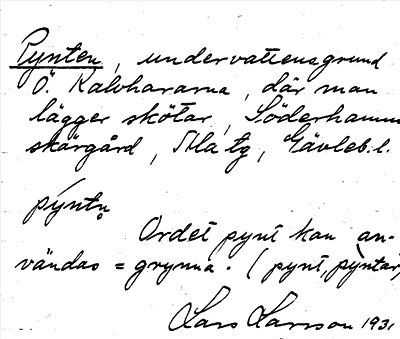 Pynten, undervattensgrund
Ö. Kalvhararna, där man
lägger skötar, Söderhamns
skärgård, Ala tg, Gävleb. l.
pýntn̥
Ordet pynt kan an-
vändas = grynna. (pynt, pyntar)
Lars Larsson 1931